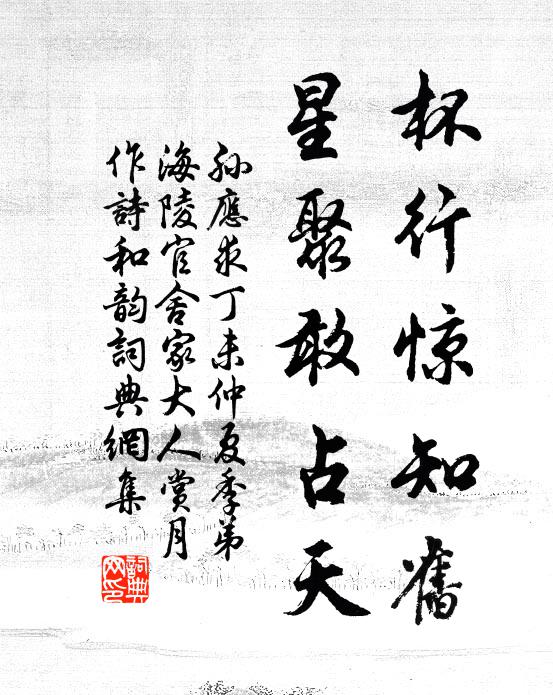 杯行惊知舊
星聚敢占天
孙應求丁未仲夏季弟
海陵官舍家大人赏月
作詩和韵詞典網集
詞典
网印